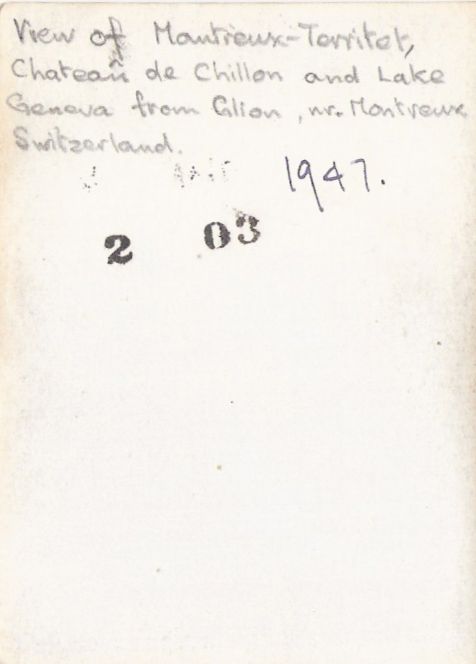 View of Montreux-Territet,
Chateaũ de Chillon and Lake
Geneva from Glion, nr. Montreux
Switzerland.
1947.
2 03